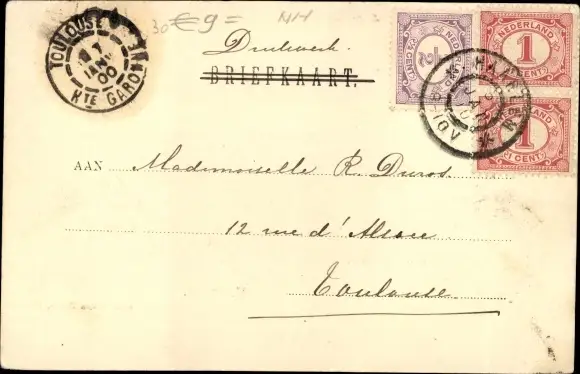 30 € 9 = NH
TOULOUSE
JANV.
00
HTE GARONNE
Drukwerk.
BRIEFKAART.
NEDERLAND
½
NEDERLAND
1
CENT
NEDERLAND
1
CENT
HAARLEM
AAN Mademoiselle R. Duros.
12 rue d'Alsace
Toulouse.